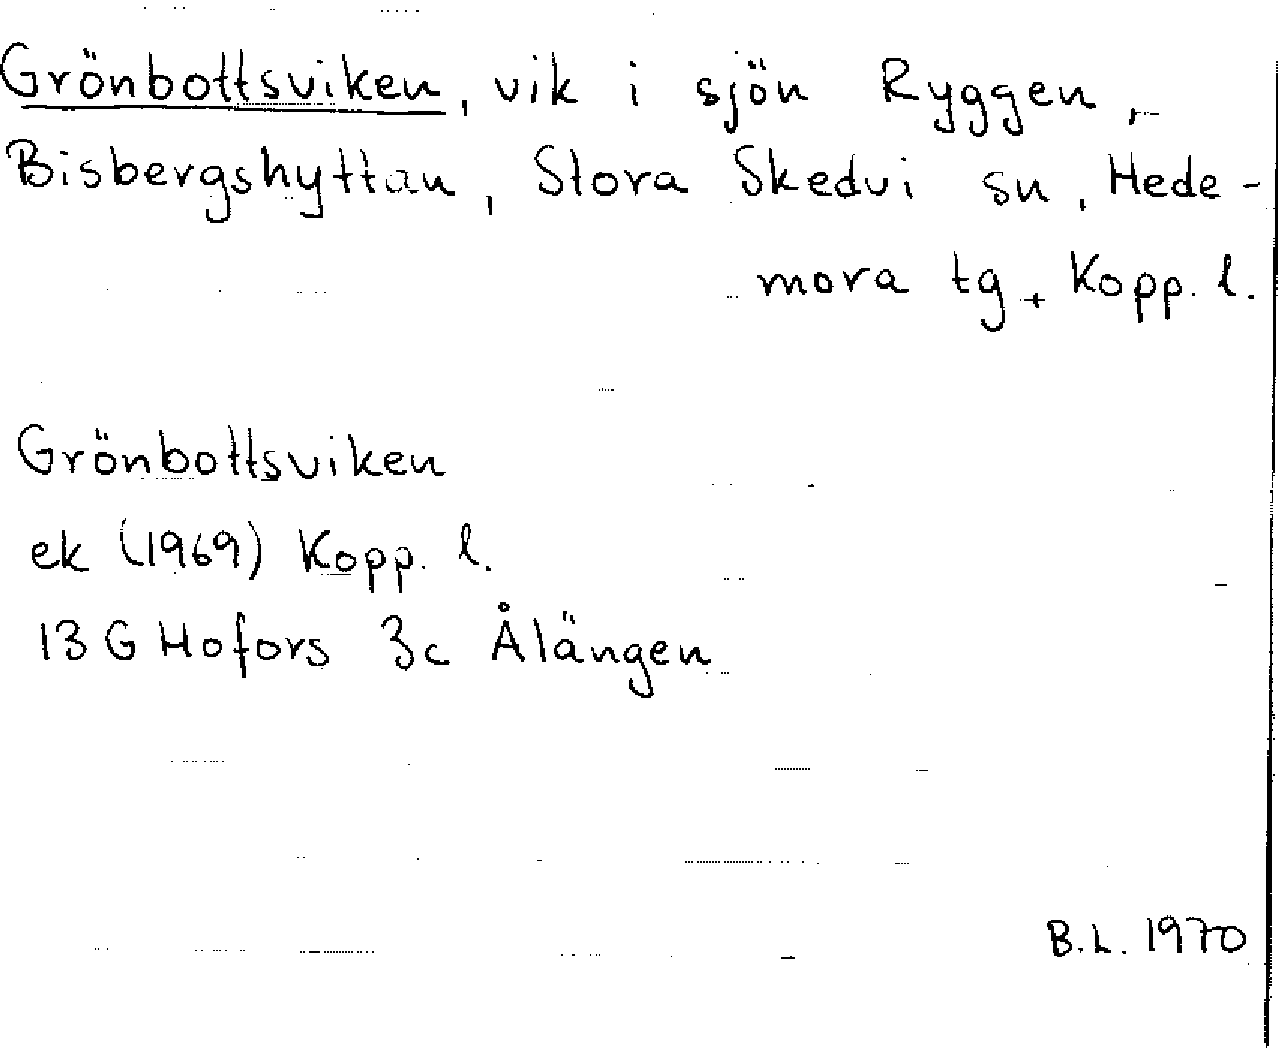 Grönbottsviken, vik i sjön Ryggen,
Bisbergshyttan, Stora Skedvi sn, Hede-
mora tg, Kopp. l.
Grönbottsviken
ek (1969) Kopp. l.
13 G Hofors 3c Ålängen
B.L. 1970